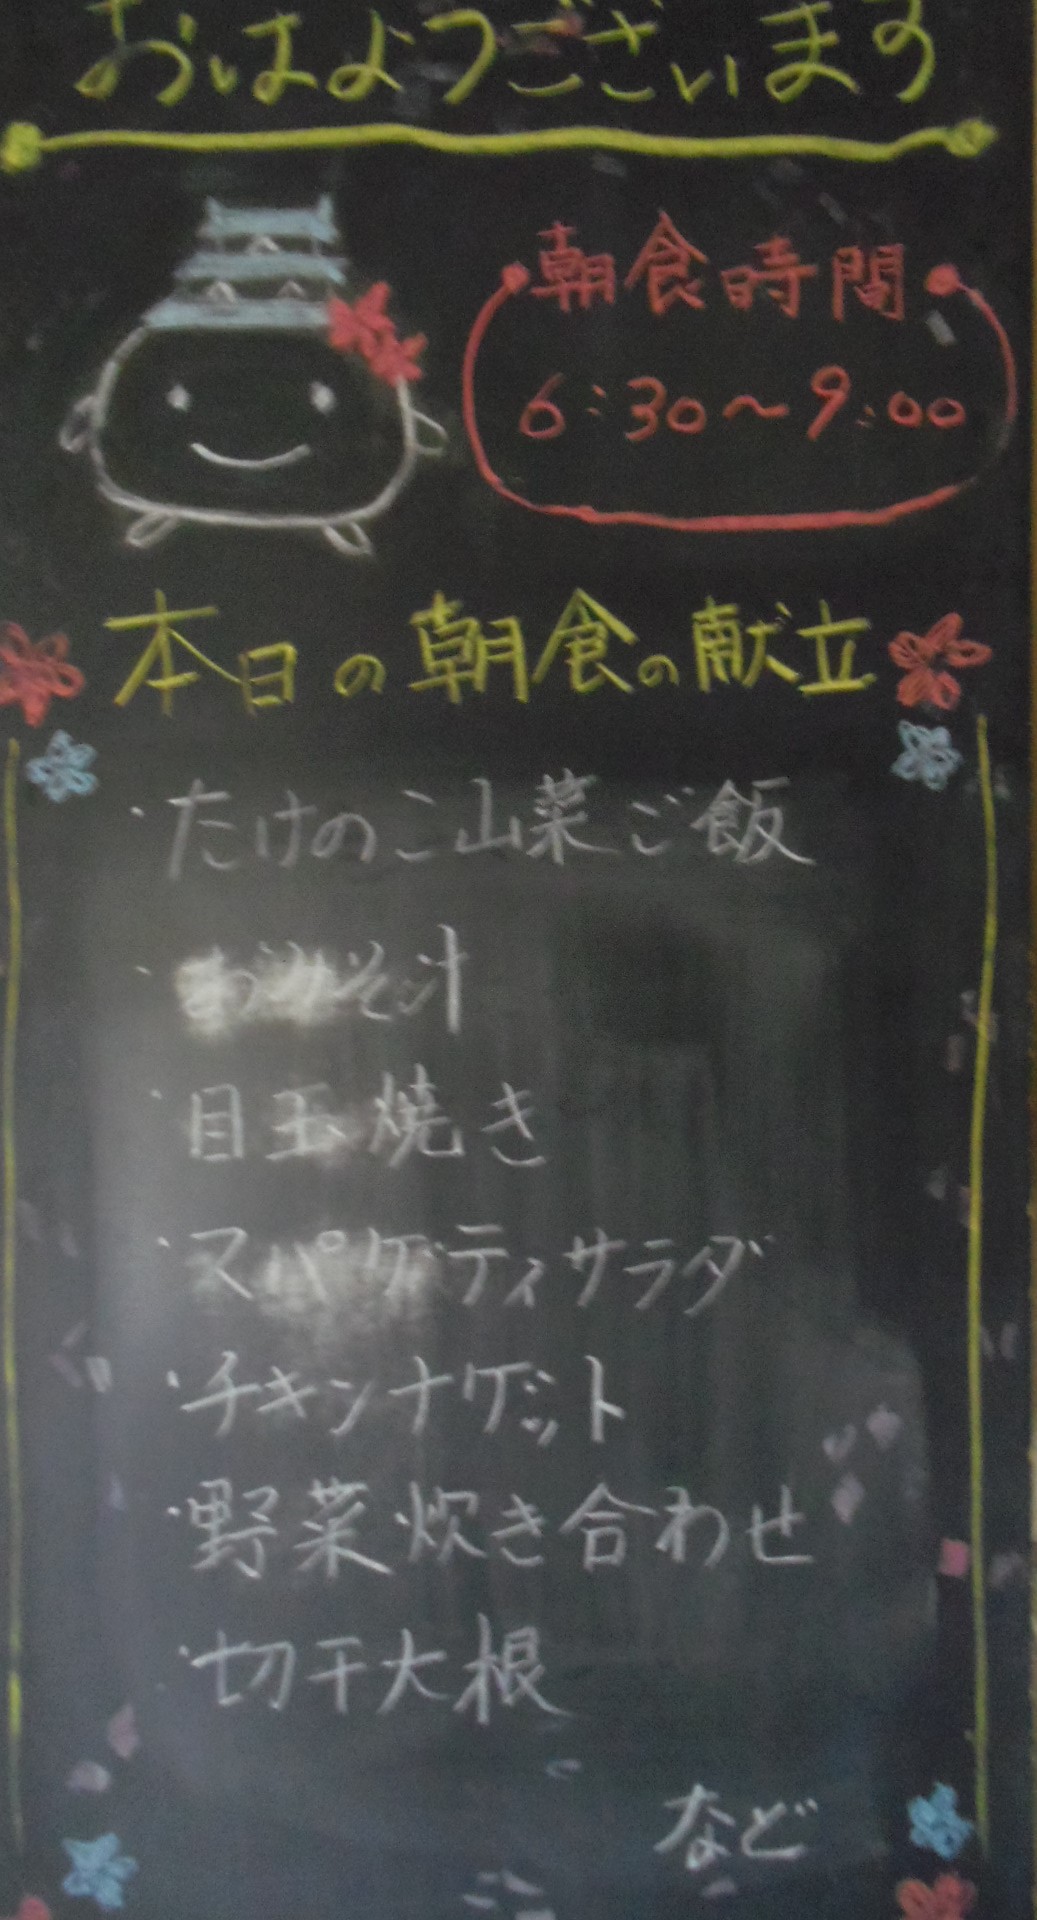 おはようございます
朝食時間
6:30〜9:00
本日の朝食の献立
・たけのこ山菜ご飯
・おみそ汁
・目玉焼き
・スパゲティサラダ
・チキンナゲット
・野菜炊き合わせ
・切干大根
など